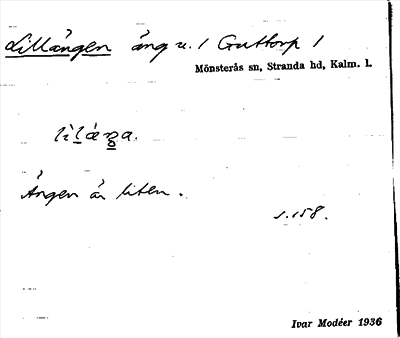 Lillången ång u. / Guttorp 1
Mönsterås sn, Stranda hd, Kalm. l.
Ången är liten.
s. 158.
Ivar Modéer 1936